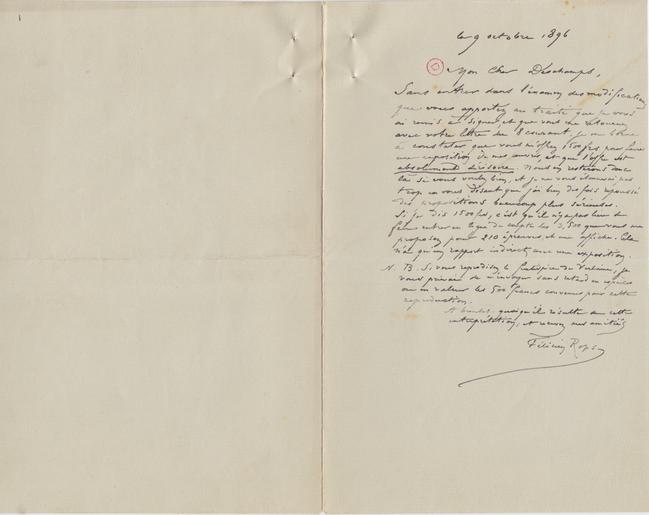 le 9 octobre 1896
Mon Cher Deschamps,
Sans entrer dans l'examen des modifications
que vous apportez au traité que je vous
ai remis à signer, et que vous me retournez
avec votre lettre du 8 courant, je me borne
à constater que vous m'offrez 1500 frs pour faire
une exposition de mes œuvres, et que l'offre est
absolument dérisoire. Nous en resterons donc
là si vous voulez bien, et je ne vous étonnerai pas
trop en vous disant que j'ai bien des fois repoussé
des propositions beaucoup plus sérieuses.
Si je dis 1500 frs, c'est qu'il n'y a pas lieu de
faire entrer en ligne de compte les 3,500 que vous me
proposez pour 210 épreuves, et une affiche. Cela
n'a qu'un rapport indirect avec une exposition.
N. B. Si vous reproduisez le frontispice de Vulcain, je
vous prierai de m'envoyer sans retard en espèces
ou en valeur les 500 francs convenus pour cette
reproduction.
A bientôt, quoiqu'il résulte de cette
interprétation, et recevez mes amitiés
Félicien Rops